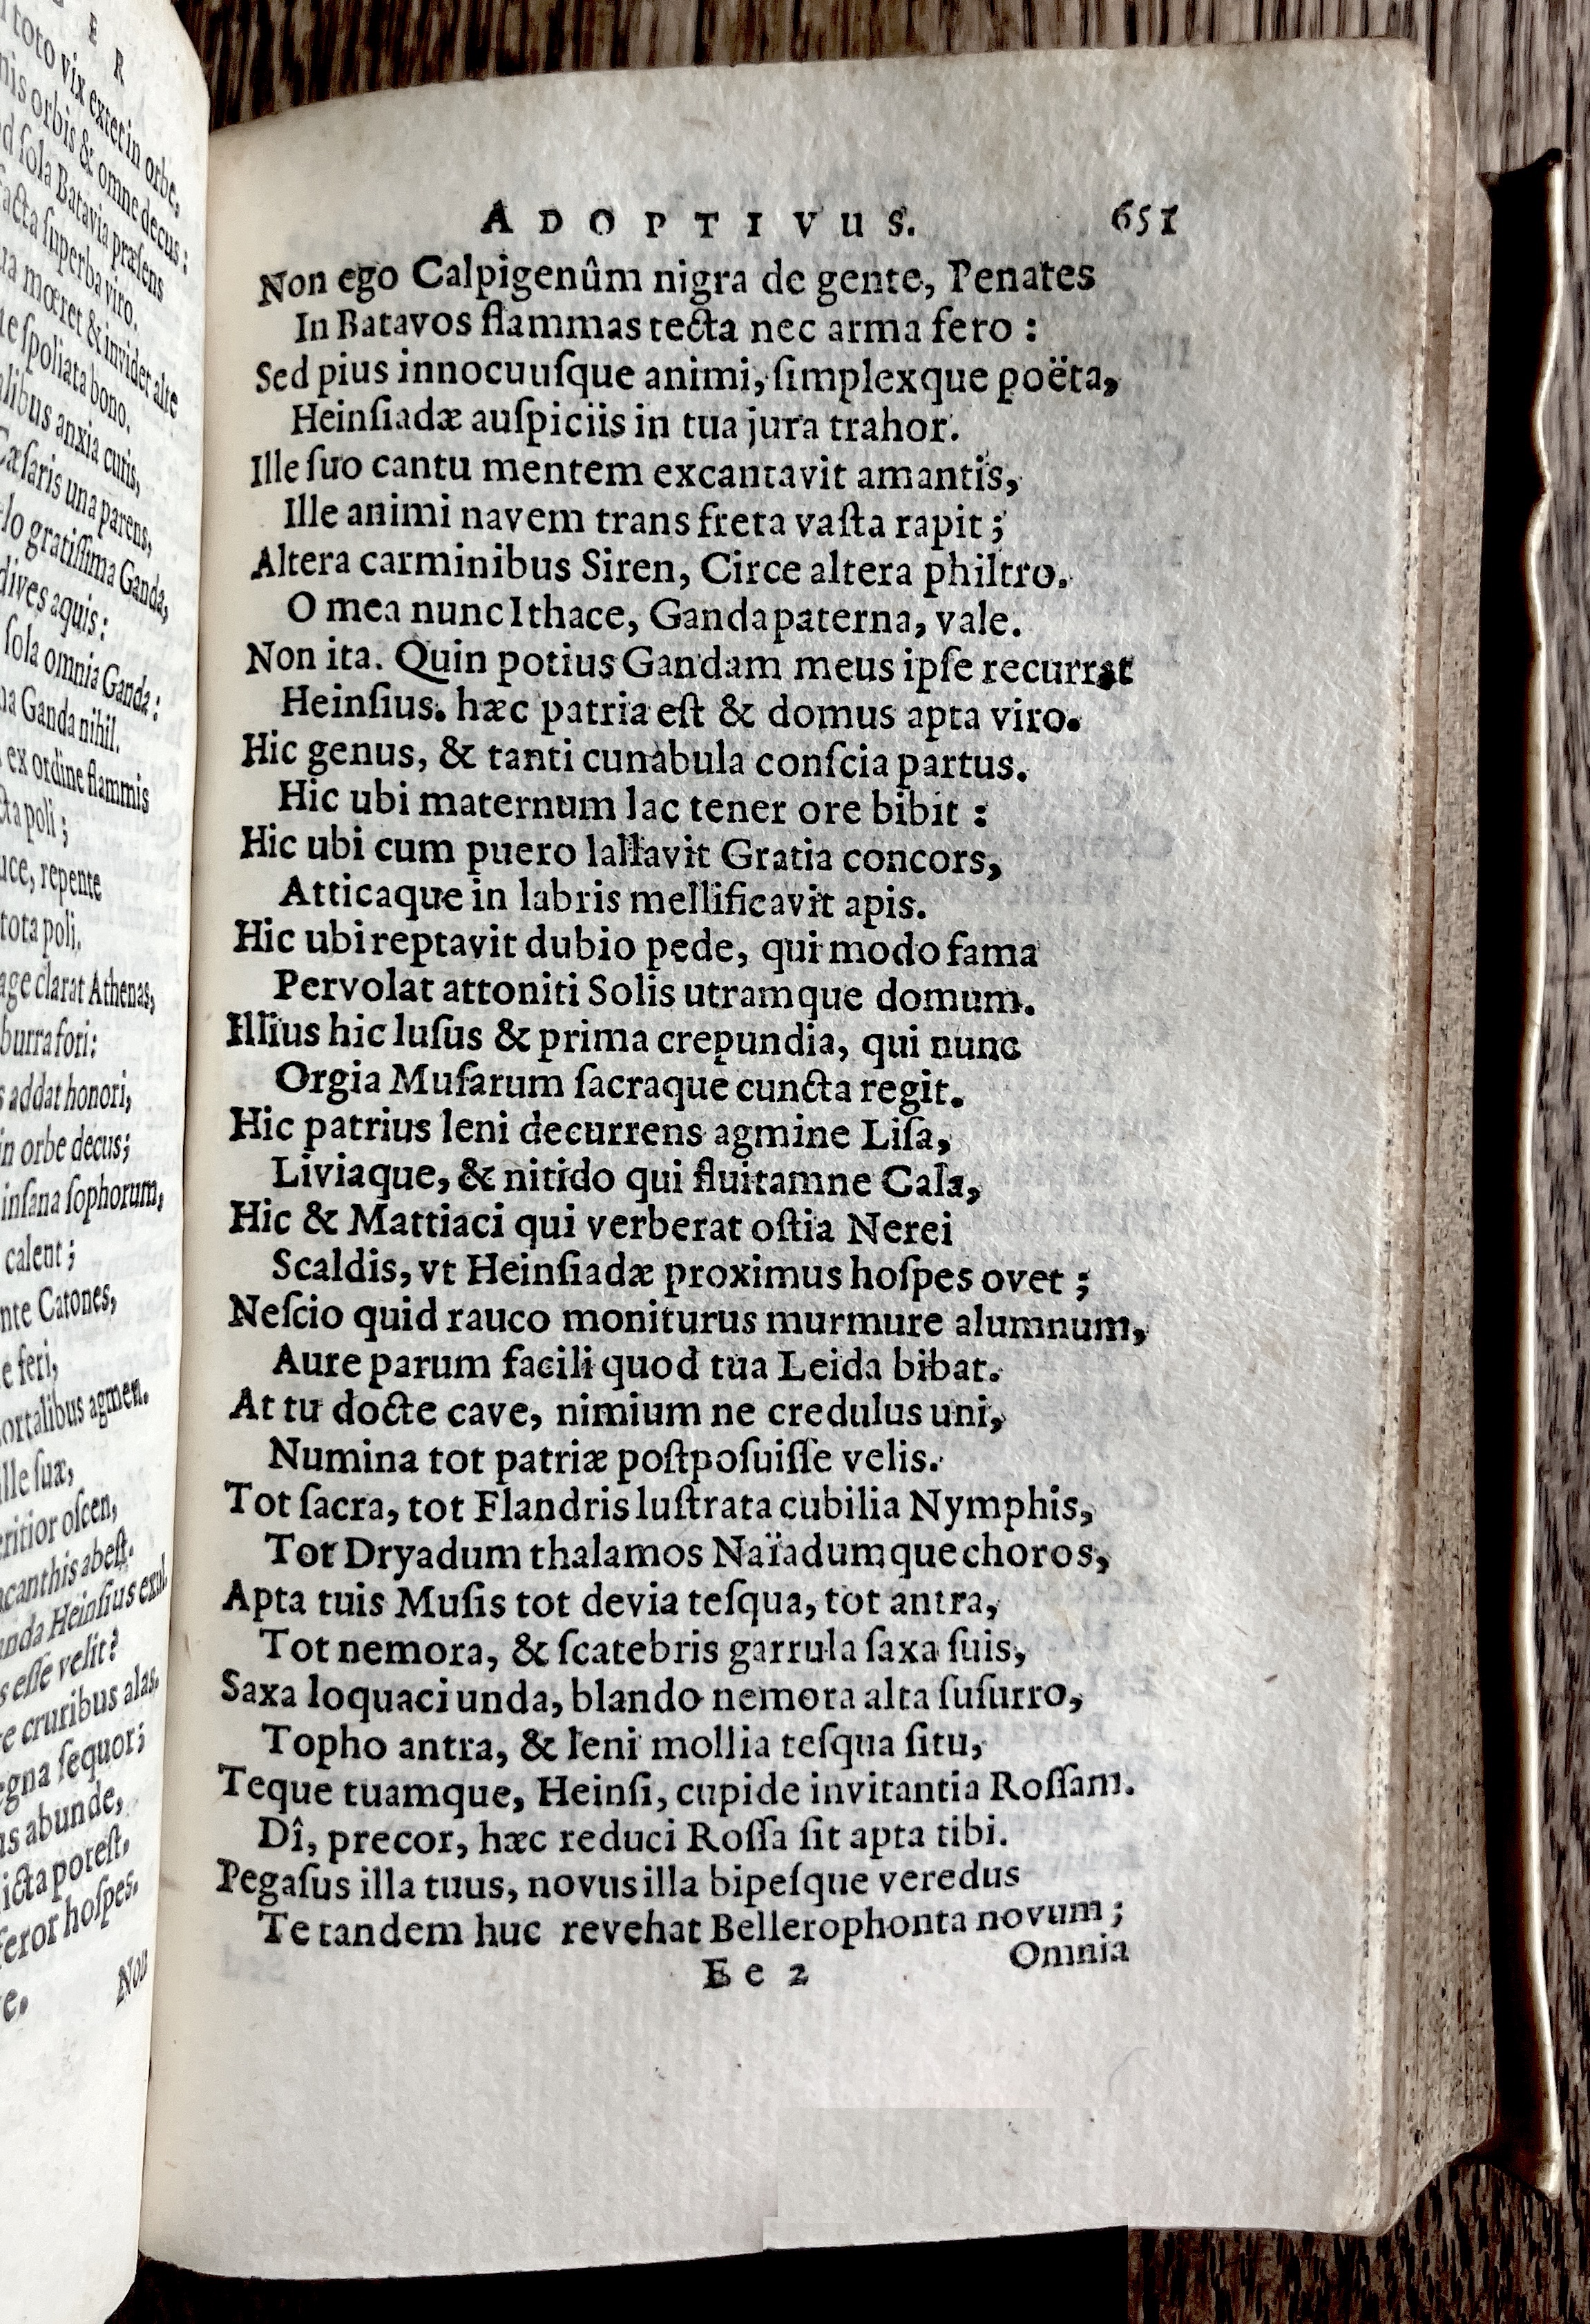 toto vix extet in orbe,
nis orbis & omne decus:
sola Batavia præsens
facta superba viro.
mœret & invidet alte
spoliata bono.
anxia curis,
Cæsaris una parens,
gratissima Ganda,
dives aquis:
sola omnia Ganda:
Ganda nihil.
ex ordine flammis
poli;
repente
tota poli.
clarat Athenas,
fori:
addat honori,
in orbe decus;
insana sophorum,
calent;
Catones,
feri,
agmen.
suæ,
oscen,
abest.
Heinsius exul
esse velit?
cruribus alas,
sequor;
abunde,
potest.
hospes.
Non
ADOPTIVUS. 651
Non ego Calpigenûm nigra de gente, Penates
In Batavos flammas tecta nec arma fero :
Sed pius innocuuſque animi, ſimplexque poëta,
Heinſiadæ auſpiciis in tua jura trahor.
Ille ſuo cantu mentem excantavit amantis,
Ille animi navem trans freta vaſta rapit ;
Altera carminibus Siren, Circe altera philtro.
O mea nunc Ithace, Ganda paterna, vale.
Non ita. Quin potius Gandam meus ipſe recurrat
Heinſius. hæc patria eſt & domus apta viro.
Hic genus, & tanti cunabula conſcia partus.
Hic ubi maternum lac tener ore bibit :
Hic ubi cum puero lallavit Gratia concors,
Atticaque in labris mellificavit apis.
Hic ubi reptavit dubio pede, qui modo fama
Pervolat attoniti Solis utramque domum.
Illius hic luſus & prima crepundia, qui nunc
Orgia Muſarum ſacraque cuncta regit.
Hic patrius leni decurrens agmine Liſa,
Liviaque, & nitido qui fluit amne Cala,
Hic & Mattiaci qui verberat oſtia Nerei
Scaldis, vt Heinſiadæ proximus hoſpes ovet ;
Neſcio quid rauco moniturus murmure alumnum,
Aure parum facili quod tua Leida bibat.
At tu docte cave, nimium ne credulus uni,
Numina tot patriæ poſtpoſuiſſe velis.
Tot ſacra, tot Flandris luſtrata cubilia Nymphis,
Tot Dryadum thalamos Naïadumque choros,
Apta tuis Muſis tot devia teſqua, tot antra,
Tot nemora, & ſcatebris garrula ſaxa ſuis,
Saxa loquaci unda, blando nemora alta ſuſurro,
Topho antra, & leni mollia teſqua ſitu,
Teque tuamque, Heinſi, cupide invitantia Roſſam.
Dî, precor, hæc reduci Roſſa ſit apta tibi.
Pegaſus illa tuus, novus illa bipeſque veredus
Te tandem huc revehat Bellerophonta novum ;
Ee 2 Omnia